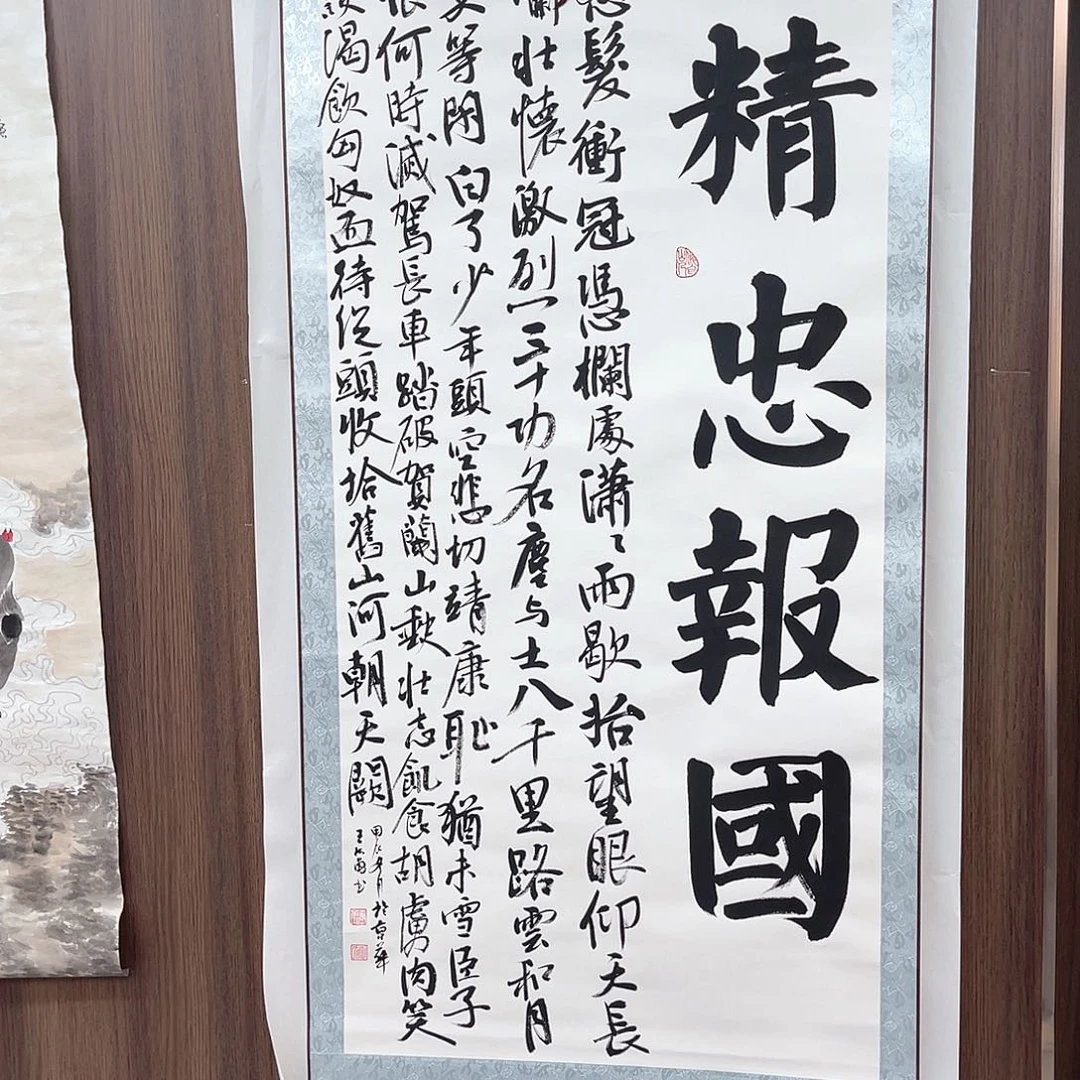 精忠報國
怒髮衝冠憑欄處瀟〻雨歇抬望眼仰天長
嘯壯懷激烈三十功名塵与土八千里路雲和月
莫等閑白了少年頭空悲切靖康耻猶未雪臣子
恨何時滅駕長車踏破賀蘭山缺壯志飢食胡虜肉笑
渴飲匈奴血待從頭收拾舊山河朝天闕